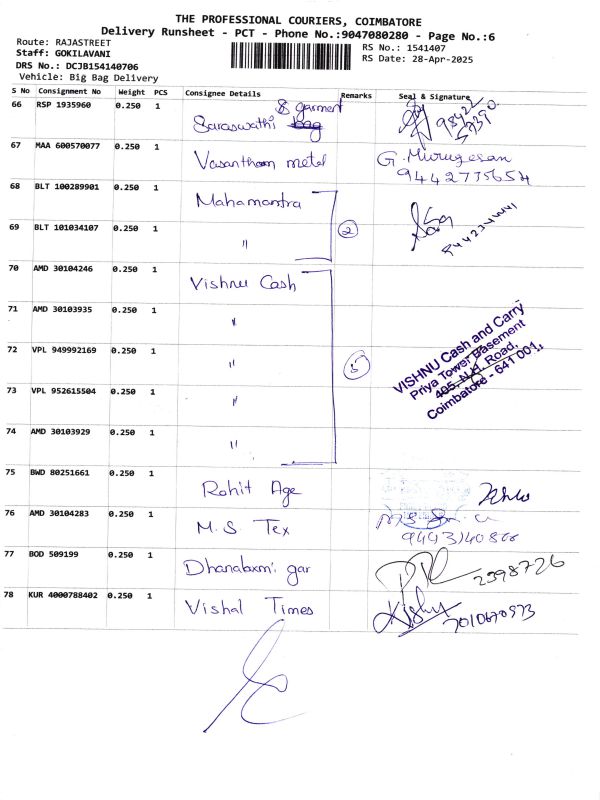 THE PROFESSIONAL COURIERS, COIMBATORE
Delivery Runsheet - PCT - Phone No.:9047080280 - Page No.:6
Route: RAJASTREET
RS No.: 1541407
Staff: GOKILAVANI
RS Date: 28-Apr-2025
DRS No.: DCJB154140706
Vehicle: Big Bag Delivery
S No Consignment No Weight PCS Consignee Details Remarks Seal & Signature
66 RSP 1935960 0.250 1 Saraswathi garment
67 MAA 600570077 0.250 1 Vasantham metal G. Murugesan
9442775654
68 BLT 100289901 0.250 1 Mahamantra
69 BLT 101034107 0.250 1 " 2
70 AMD 30104246 0.250 1 Vishnu Cash
71 AMD 30103935 0.250 1 "
72 VPL 949992169 0.250 1 " 5
73 VPL 952615504 0.250 1 "
74 AMD 30103929 0.250 1 "
VISHNU Cash and Carry
Priya Tower Basement
405, N.H. Road,
Coimbatore - 641 001.
75 BWD 80251661 0.250 1 Rohit Age
76 AMD 30104283 0.250 1 M.S. Tex
77 BOD 509199 0.250 1 Dhanalaxmi gar 2398726
78 KUR 4000788402 0.250 1 Vishal Times Kishu